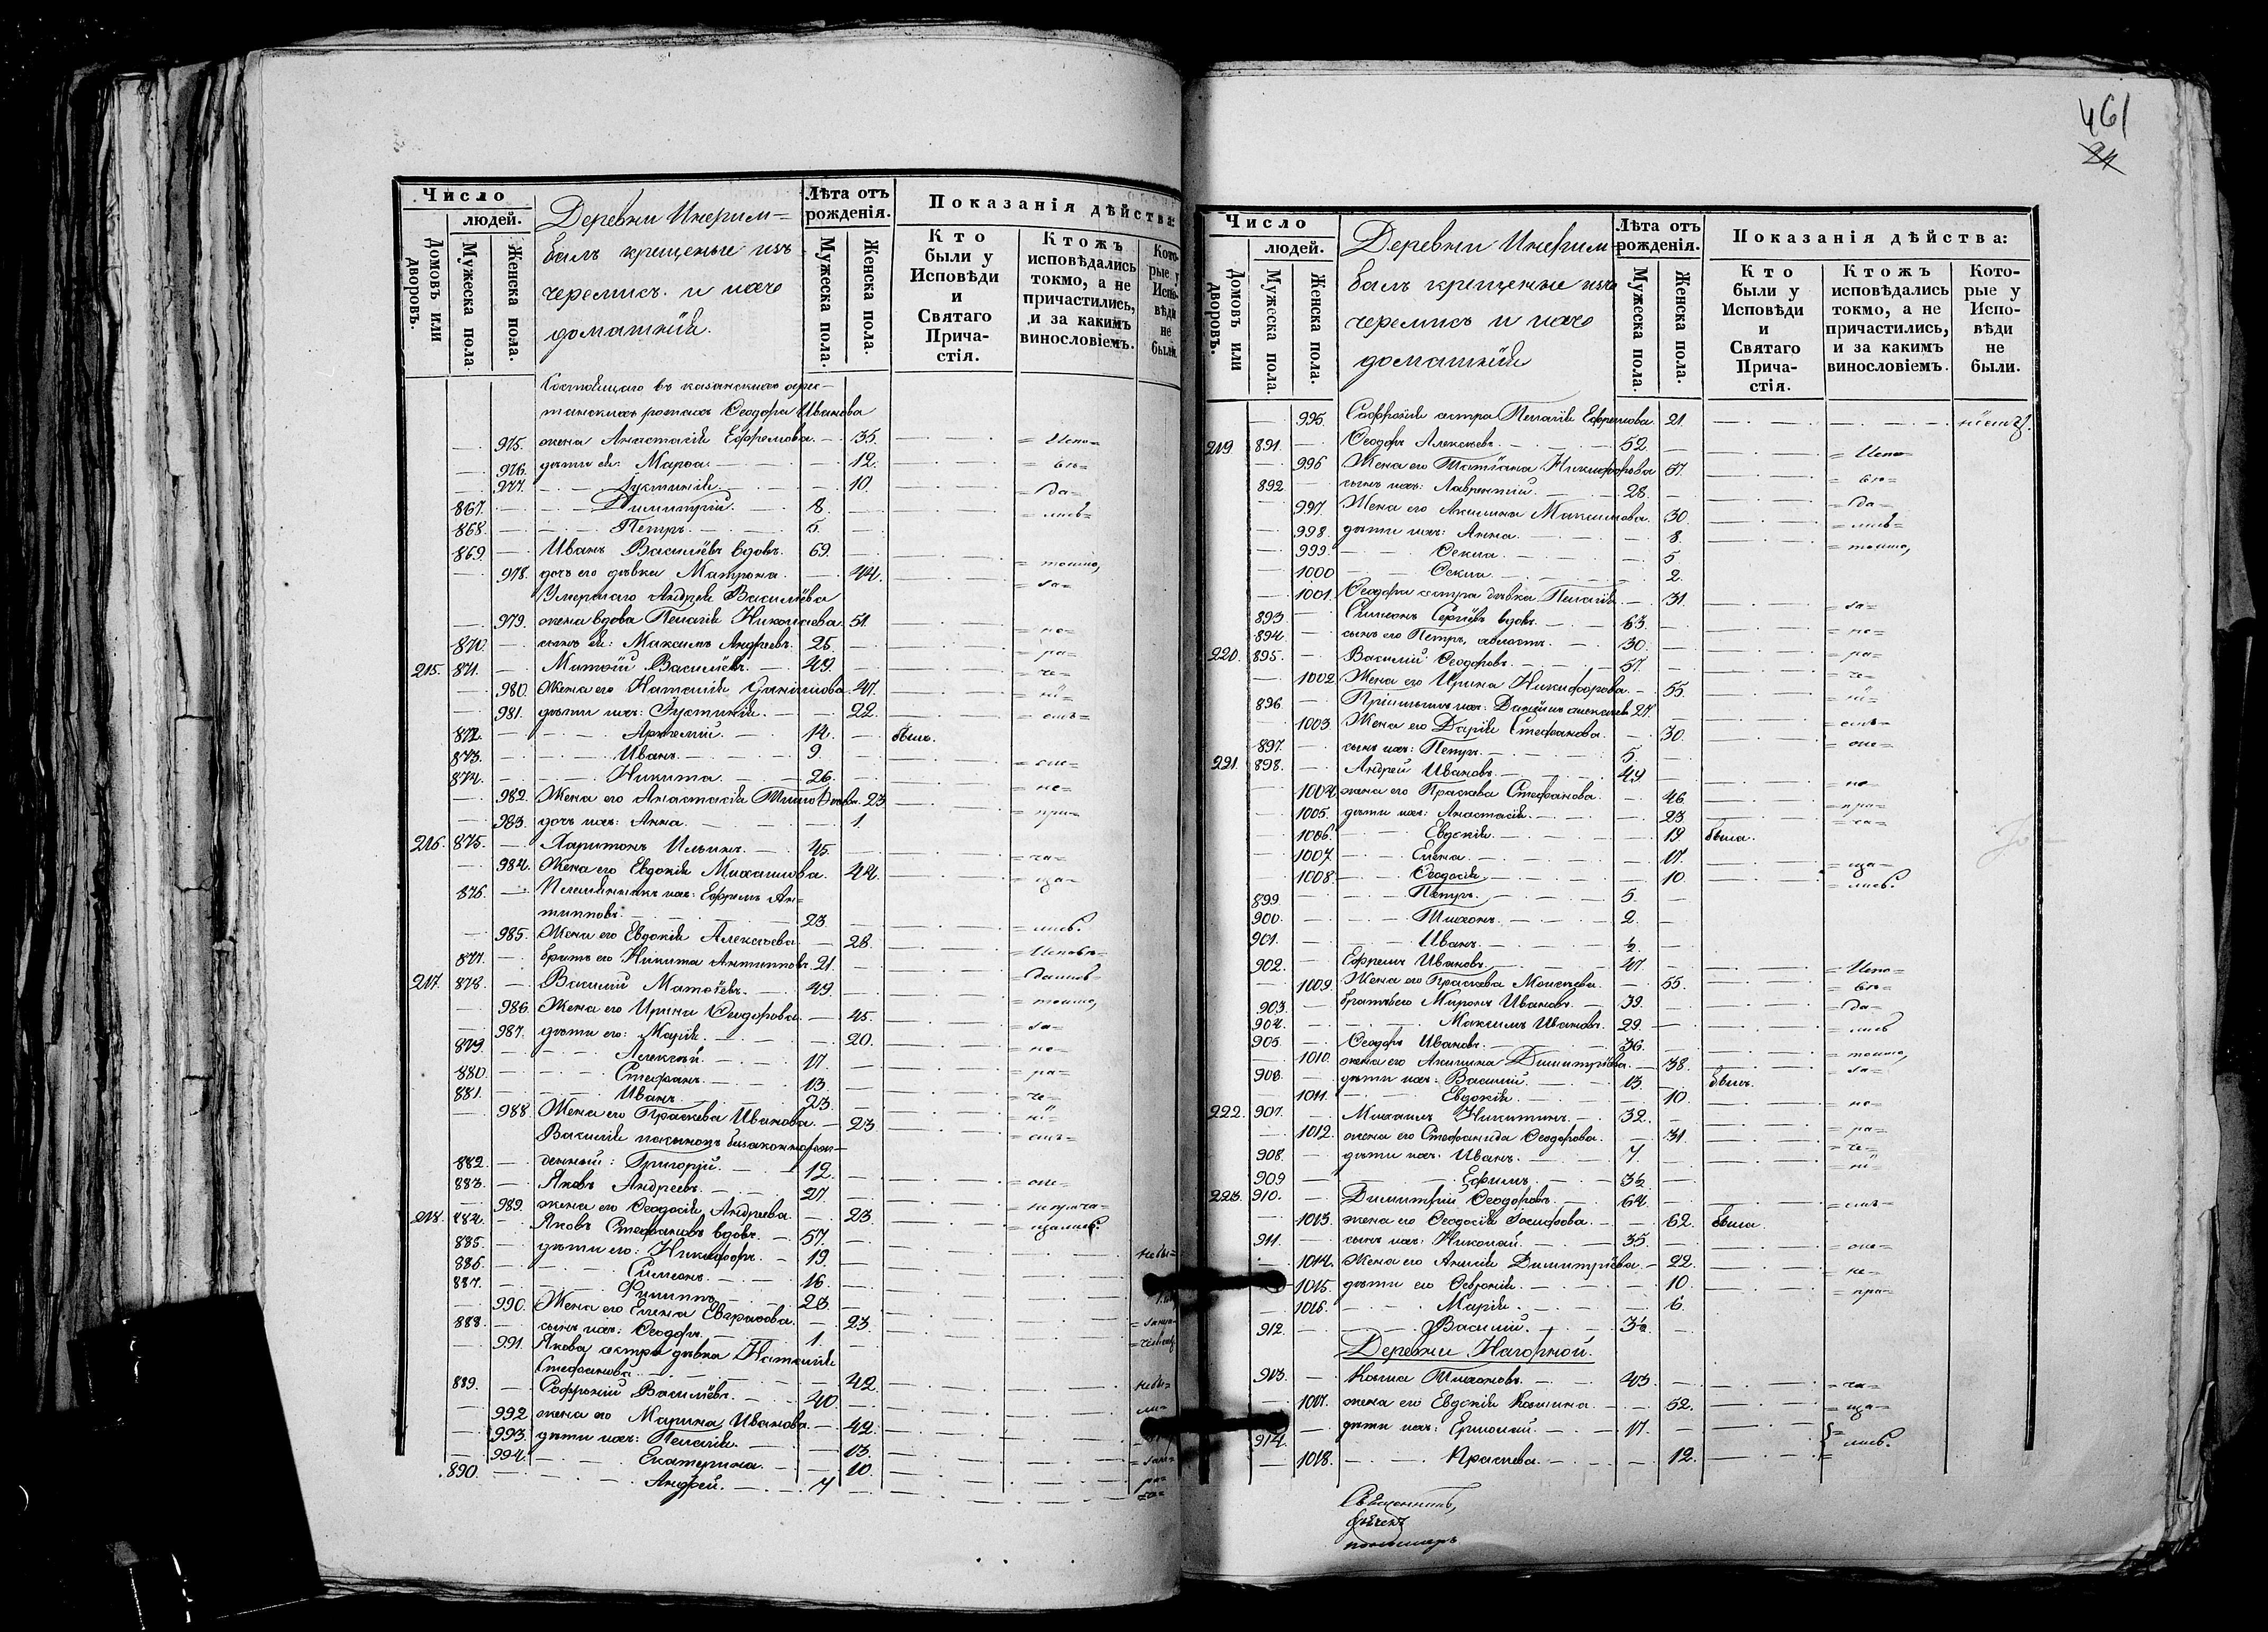 Число
людей.
Домовъ или дворовъ.
Мужеска пола.
Женска пола.
Деревни Инерим=
балъ крещеные изъ
черемисъ и ихъ
домашнія.
Лѣта отъ рожденія.
Мужеска пола.
Женска пола.
Показанія дѣйства:
Кто были у Исповѣди и Святаго Причастія.
Ктожъ исповѣдались токмо, а не причастились, и за какимъ винословіемъ.
Которые у Исповѣди не были.
Состоящаго въ казанскихъ арес-
танскихъ ротахъ Ѳеодора Иванова
975. жена Анастасія Ефремова. 35. = Испо=
976. дѣти ея: Марѳа. 12. = вѣ=
977. Іустинія. 10. = да=
867. Димитрій. 8. = лись=
868. Петръ. 5.
869. Иванъ Васильевъ вдовъ. 69. = токмо,
978. дочь его дѣвка Матрона. 44. = за=
Умершаго Андрея Васильева
979. жена вдова Пелагія Николаева. 51. = не=
870. сынъ ея: Максимъ Андреевъ. 25. = ра=
215. 871. Матѳій Васильевъ. 49. = че=
980. Жена его Наталія Даніилова. 47. = нi=
981. дѣти ихъ: Іустинія. 22. = емъ=
872. Артемій. 14. былъ.
873. Иванъ. 9. = оне=
874. Никита. 26. = не=
982. Жена его Анастасія 23 = при=
983. дочь ихъ: Анна. 1.
216. 875. Харитонъ Ильинъ. 45. = ча=
984. Жена его Евдокія Михаилова. 44. = ща=
876. Племянникъ ихъ: Ефремъ Ан=
типповъ. 23. = лись.
985. Жена его Евдокія Алексѣева. 28. = Исповѣ=
877. братъ его Никита Антипповъ. 21. = дались=
217. 878. Василій Матѳѣевъ. 49. = токмо,
986. Жена его Ирина Ѳеодорова. 45. = за=
987. дѣти его: Марія. 20. = не=
879. Алексѣй. 17. = ра=
880. Стефанъ. 13. = че=
881. Иванъ. 23. = нi=
988. Жена его Праскева Иванова. 23. = емъ=
Василія пасынокъ безаконнорож-
882. денный: Григорій. 12. = оне=
883. Яковъ Андреевъ. 27. = неприча=
989. жена его Ѳеодосія Андреева. 23. = щались.
218. 884. Яковъ Стефановъ вдовъ. 57.
885. дѣти его: Никифоръ. 19. небы=
886. Симеонъ. 16.
887. Филиппъ. 23.
990. Жена его Елена Евграфова. 23.
888. сынъ ихъ: Ѳеодоръ. 1.
991. Якова сестра дѣвка Наталія
Стефанова. 42.
889. Софроній Васильевъ. 40. небы=
992. жена его Марина Иванова. 42. ли=
993. дѣти ихъ: Пелагія. 13.
994. Екатерина. 10.
890. Андрей. 7.
461
24
Число
людей.
Домовъ или дворовъ.
Мужеска пола.
Женска пола.
Деревни Инерим-
балъ крещенные изъ
черемисъ и ихъ
домашнія
Лѣта отъ рожденія.
Мужеска пола.
Женска пола.
Показанія дѣйства:
Кто были у Исповѣди и Святаго Причастія.
Ктожъ исповѣдались токмо, а не причастились, и за какимъ винословіемъ.
Которые у Исповѣди не были.
995. Софронія сестра Пелагія Ефремова. 21.
219. 891. Ѳеодоръ Алексѣевъ. 52. = Испо=
996 Жена его Татіана Никифорова 57. = вѣ=
892. сынъ ихъ: Лаврентій. 28. = да=
997. Жена его Акилина Максимова. 30. = лись=
998. дѣти ихъ: Анна. 8. = токмо,
999. Ѳекла. 5
1000 Ѳекла. 2.
1001. Ѳеодора сестра дѣвка Пелагія. 31. = за=
893. Симеонъ Сергіевъ вдовъ. 63. = не=
894. сынъ его Петръ, холостъ. 30. = ра=
220. 895. Василій Ѳеодоровъ. 57. = че=
1002. Жена его Ирина Никифорова. 55. = нi=
896. Пріимышъ ихъ: Даніилъ Алексѣевъ 27. = емъ=
1003. Жена его Дарія Стефанова. 30. = оне=
897. сынъ ихъ: Петръ. 5.
221. 898. Андрей Ивановъ. 49 = не=
1004. жена его Праскева Стефанова. 46. = при=
1005. дѣти ихъ: Анастасія. 23. = ча=
1006. Евдокія. 19 была.
1007. Елена. 17. = ща=
1008. Ѳеодосія. 10. = лись.
899. Петръ. 5.
900. Тихонъ. 2.
901. Иванъ. ½
902. Ефремъ Ивановъ. 47. = Испо=
1009. Жена его Праскева Моисеева. 55. = вѣ=
903. братья его Миронъ Ивановъ. 39. = да=
904. Максимъ Ивановъ. 29. = лись
905. Ѳеодоръ Ивановъ. 36. = токмо,
1010. жена его Акилина Димитріева. 38. = за=
906. дѣти ихъ: Василій. 13. былъ.
1011. Евдокія. 10. = не=
222. 907. Михаилъ Никитинъ. 32. = ра=
1012. жена его Стефанида Ѳеодорова. 31. = че=
908. дѣти ихъ: Иванъ. 7. = нi=
909 Ефимъ. 3½
223. 910. Димитрій Ѳеодоровъ. 64. = емъ=
1013. жена его Ѳеодосія Іосифова. 62. была.
911. сынъ ихъ: Николай. 35. = оне=
1014. Жена его Анисія Димитріева. 22. = не=
1015. дѣти его Ѳевронія. 10. = при=
1016. Марія. 6.
912. Василій. 3½
Деревни Нагорной.
913. Козма Тихоновъ. 43. = ча=
1017. жена его Евдокія Козмина. 52. = ща=
914. дѣти ихъ: Ермолай. 17. = лись.
1018. Праскева. 12.
Священникъ,
пономарь